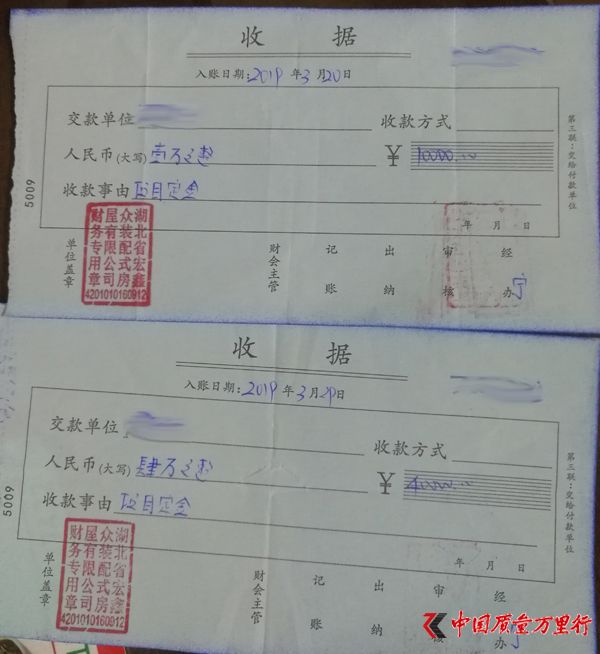 收 据
入账日期：2019 年 3 月 20 日
交款单位 收款方式
人民币(大写) 壹万元整 ￥ 10000.00
收款事由 项目定金
年 月 日
单位盖章 财会主管 记账 出纳 审核 经办 宁
湖北省宏鑫众装配式房屋有限公司财务专用章
4201010160912
5009
第三联：交给付款单位
收 据
入账日期：2019 年 3 月 29 日
交款单位 收款方式
人民币(大写) 肆万元整 ￥ 40000.00
收款事由 项目定金
年 月 日
单位盖章 财会主管 记账 出纳 审核 经办
湖北省宏鑫众装配式房屋有限公司财务专用章
4201010160912
5009
第三联：交给付款单位
中国质量万里行